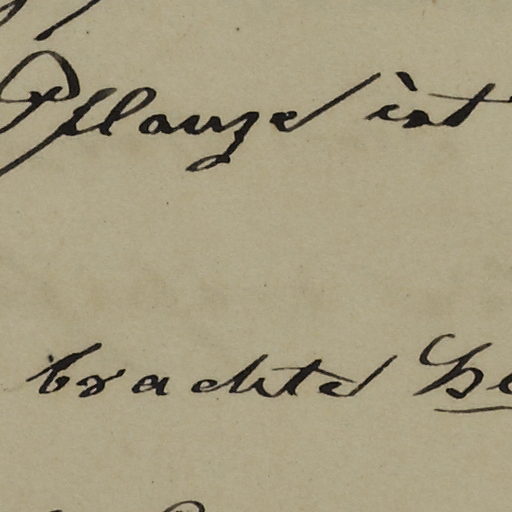 Pflanze ist
brachte